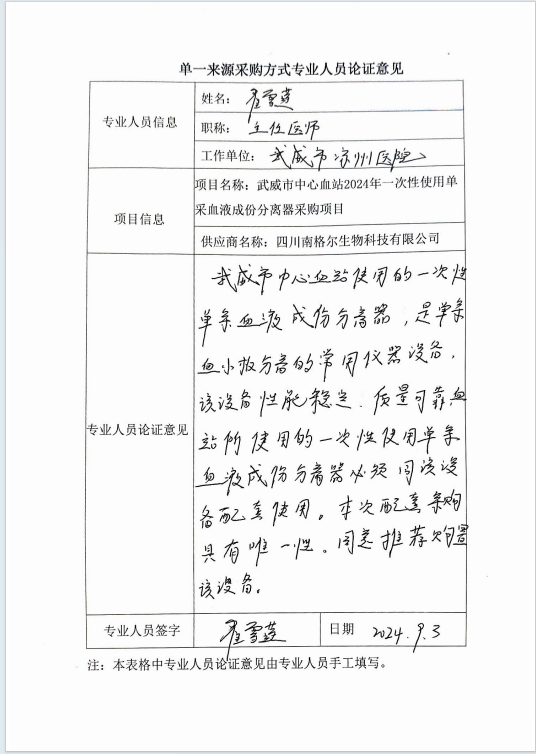 单一来源采购方式专业人员论证意见
专业人员信息
姓名：翟雪莲
职称：主任医师
工作单位：武威市凉州医院
项目信息
项目名称：武威市中心血站2024年一次性使用单
采血液成份分离器采购项目
供应商名称：四川南格尔生物科技有限公司
专业人员论证意见
武威市中心血站使用的一次性
单采血液成份分离器，是单采
血小板分离的常用仪器设备，
该设备性能稳定、质量可靠,血
站所使用的一次性使用单采
血液成份分离器必须同该设
备配套使用。本次配套采购
具有唯一性。同意推荐购置
该设备。
专业人员签字
翟雪莲
日期
2024.9.3
注：本表格中专业人员论证意见由专业人员手工填写。